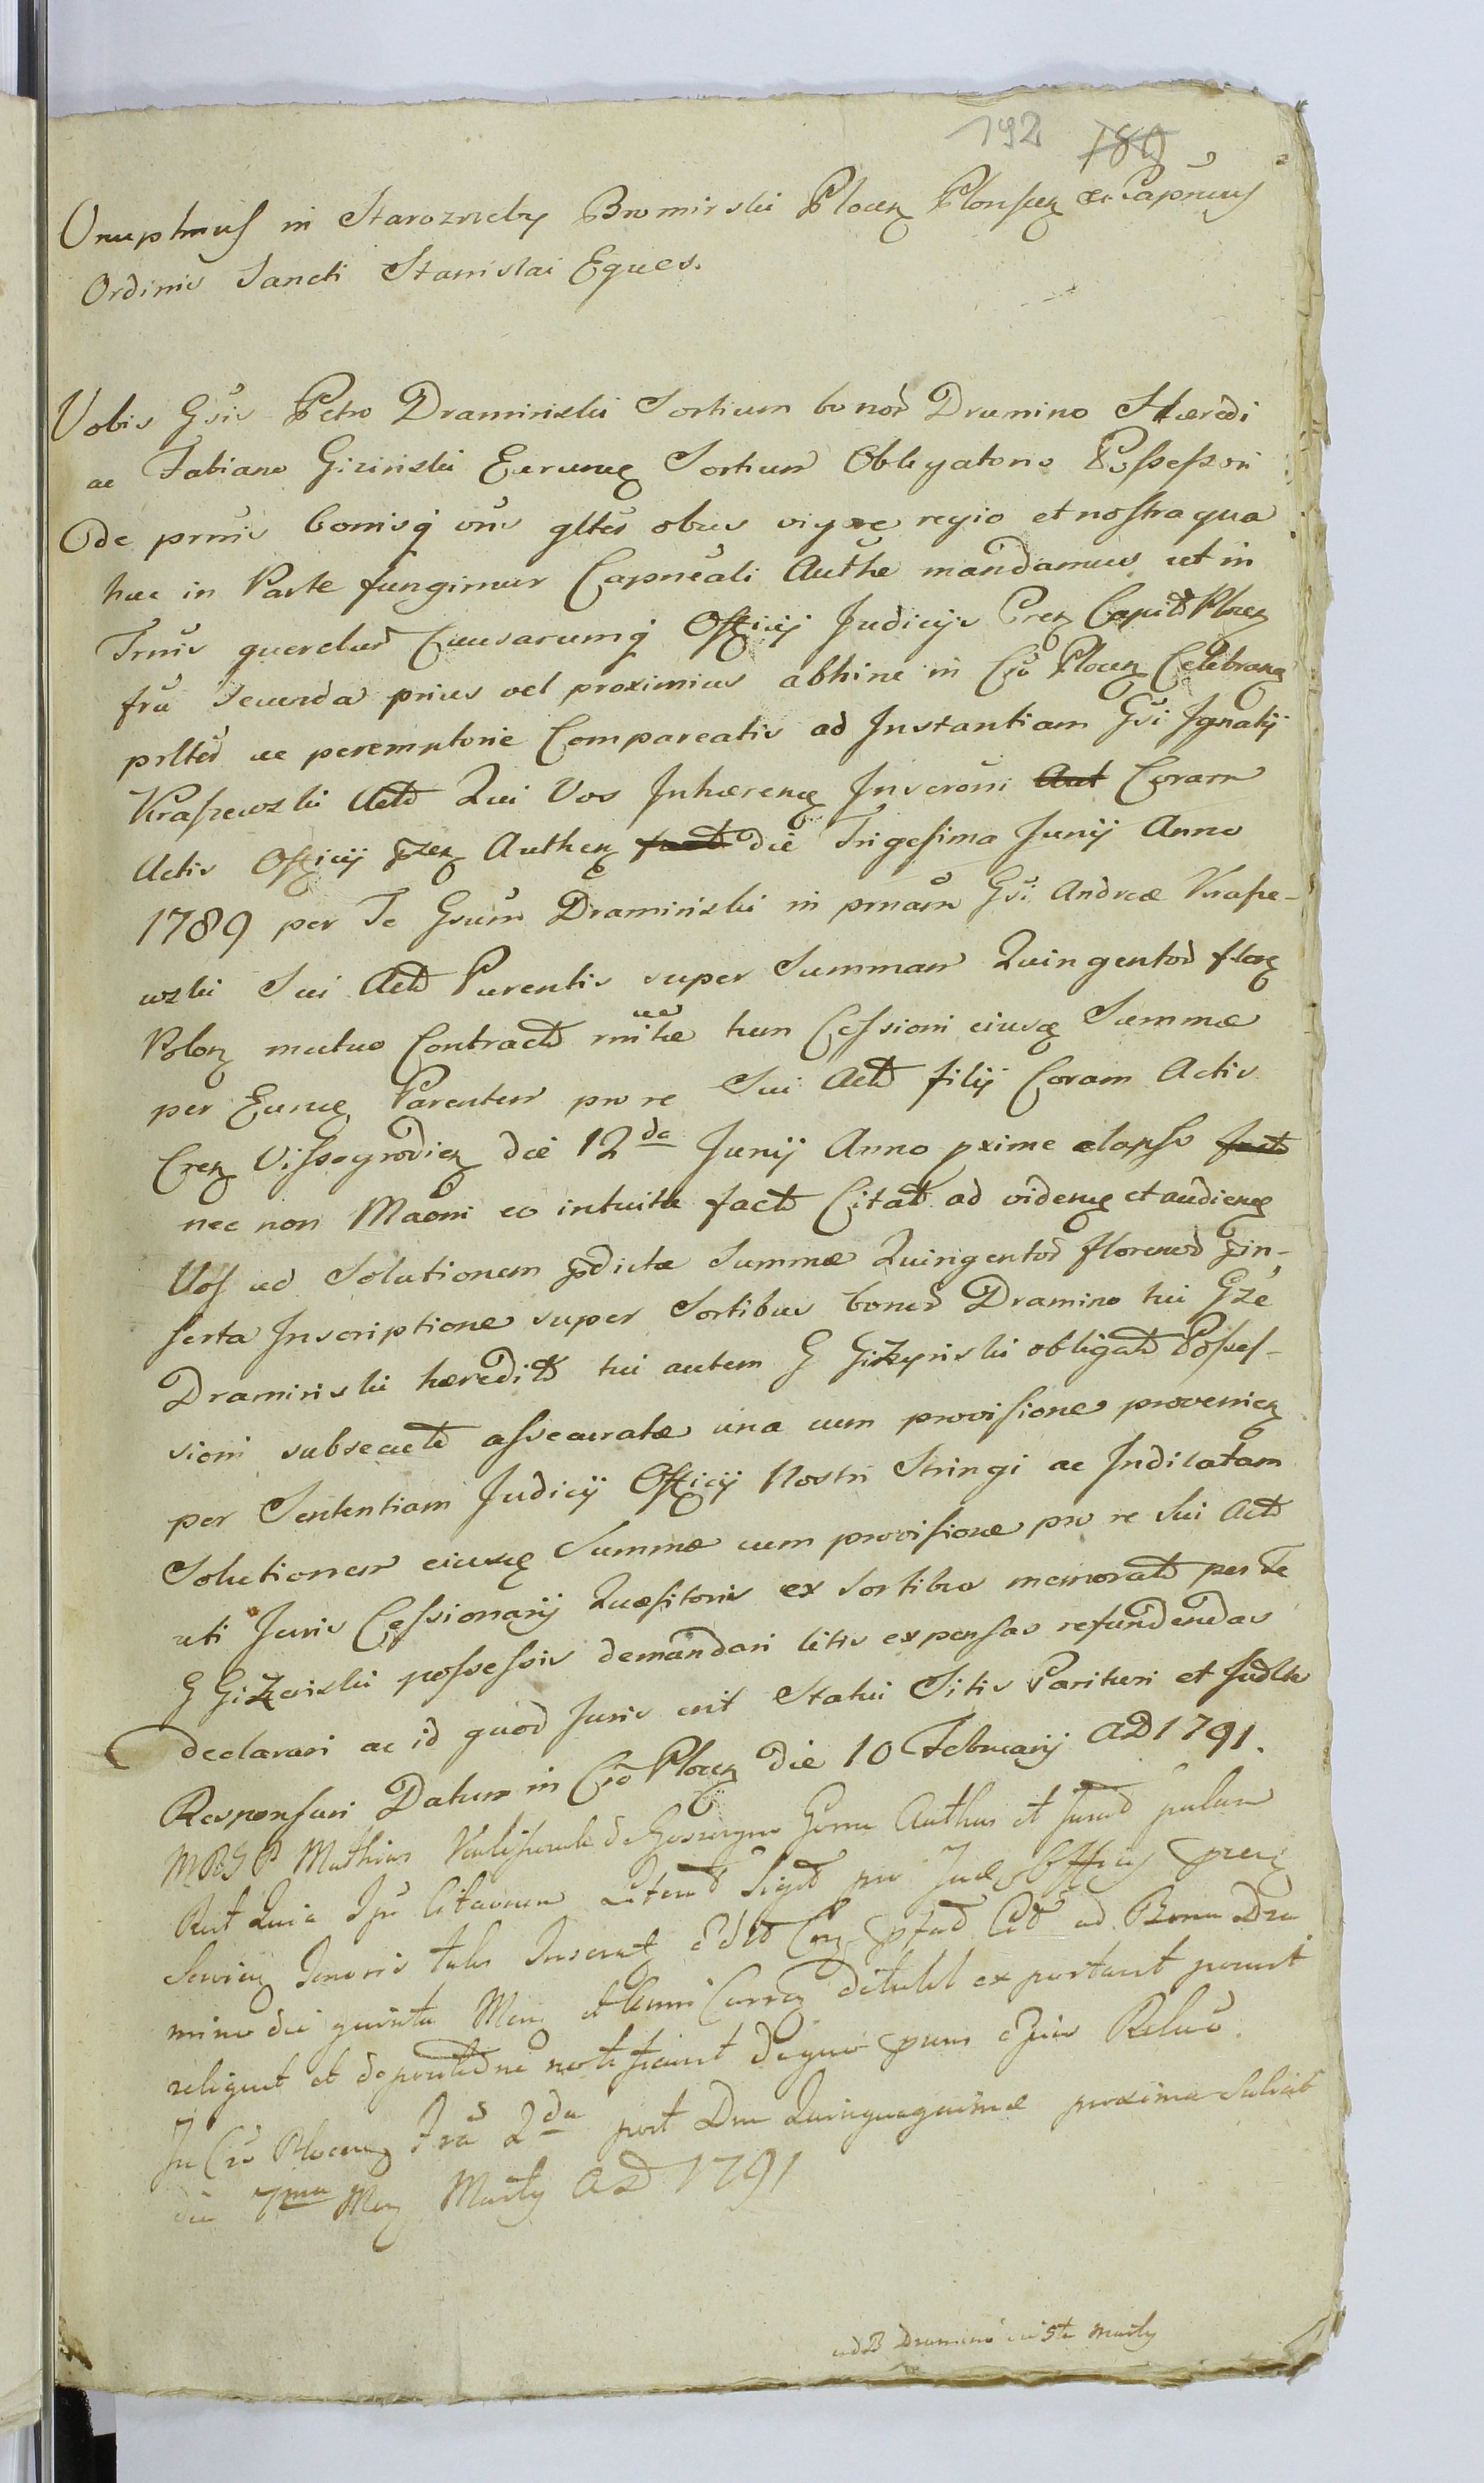 192 789
Onuphrius in Starozreby Bromirski Plocen Plonscen &c Capneus
Ordinis Sancti Stanislai Eques.
Vobis Gsis Petro Draminski Sortium bonor Dramino Hæredi
ac Fabiano Gizinski Earunq Sortium Obligatorio Possessori
De prnis bonisq vris gltus obus vigore regio et nostra qua
hac in Parte fungimur Capneali Authe mandamus ut in
Trnis querelar Causarumq Officij Judicijs Cren Capit Plocen
fria secunda prius vel proximius abhinc in Cro Plocen Celebran
prlter ac peremptorie Compareatis ad Instantiam Gsi Ignatij
Kraszewski Act Qui Vos Inhæren Inscroni Aut Coram
Actis Officij pzen Authen fact die Trigesima Junij Anno
1789 per Te Gsum Draminski in prnam Gsi Andreæ Krasze-
wski Sui Act Parentis super Summam Quingentor flor
Polon mutuo Contract tum Cessioni eiusq Summæ
per Eunq Parentem pro re Sui Act filij Coram Actis
Cren Vissogrodien die 12da Junij Anno pxime elapso fact
nec non Maoni eo intuitu fact Citat ad viden et audien
Vos ad Solutionem pdictæ Summæ Quingentor florenor pin-
serta Inscriptione super Sortibus bonor Dramino tui Gze
Draminski hæredit tui autem G Giżynski obligat Posses-
sioni subsecut assecuratæ una cum provisione provenien
per Sententiam Judicij Officij Nostri Stringi ac Indilatam
Solutionem eiusq Summæ cum provisione pro re Sui Act
uti Juris Cessionarij Quæsitoris ex Sortibus memorat per Te
G Giżinski possessis demandari litis expensas refundendas
declarari ac id quod Juris erit Statui Sitis Parituri et Judlr
Responsuri Datum in Cro Plocen die 10 Februarij AD 1791.
MRSP Mathias de Gora Authus et Jurat palam
Rect Quia Ipse litarum Sigil pro Officij
Serien Tenoris talis Inserat ad Bona Dra
mino die quinta Men et Anni Curren detulit exportavit posuit
reliquit et notificavit Relaõ.
In Cro Plocen Fra 2da post Dm Quinquagesimæ proxima
die 7ma Men Martij AD 1791
ad B Dramino die 5ta Martij